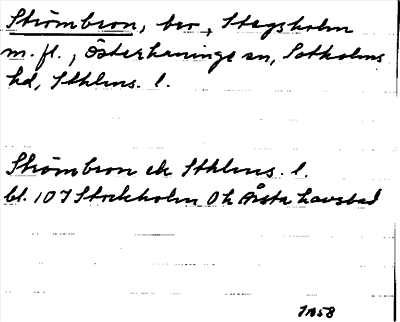 Strömbron, bro, Stegsholm
m. fl., Österhaninge sn, Sotholms
hd, Sthlms. l.
Strömbron ek Sthlms. l.
bl. 107 Stockholm Oh Årsta havsbad
1958